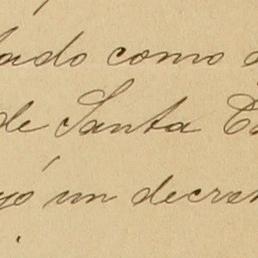 tado como
de Santa
yó un decre